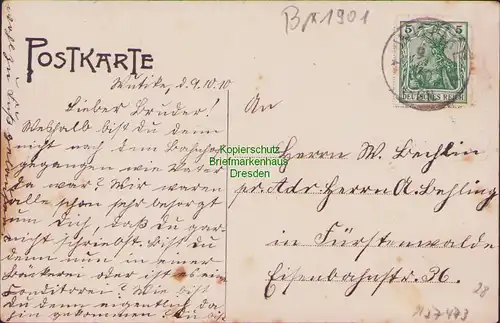 B/x 1901
5 5
DEUTSCHES REICH
POSTKARTE
Wutike, d. 9.10.10
Lieber Bruder!
Weshalb bist Du denn
nicht nach dem Bahnhof
gegangen wie Vater
da war? Wir waren
alle schon sehr besorgt
um Dich, daß Du gar
nicht schriebst. bist Du
denn nun in einer
Bäckerei oder ist es eine
Conditorei? Wie bist
Du denn eigentlich da
hin gekommen
An
Herrn W. Bechlin
pr. Adr. Herrn A. Behling
in Fürstenwalde
Eisenbahnstr. 36.
28
M37473
Kopierschutz
Briefmarkenhaus
Dresden